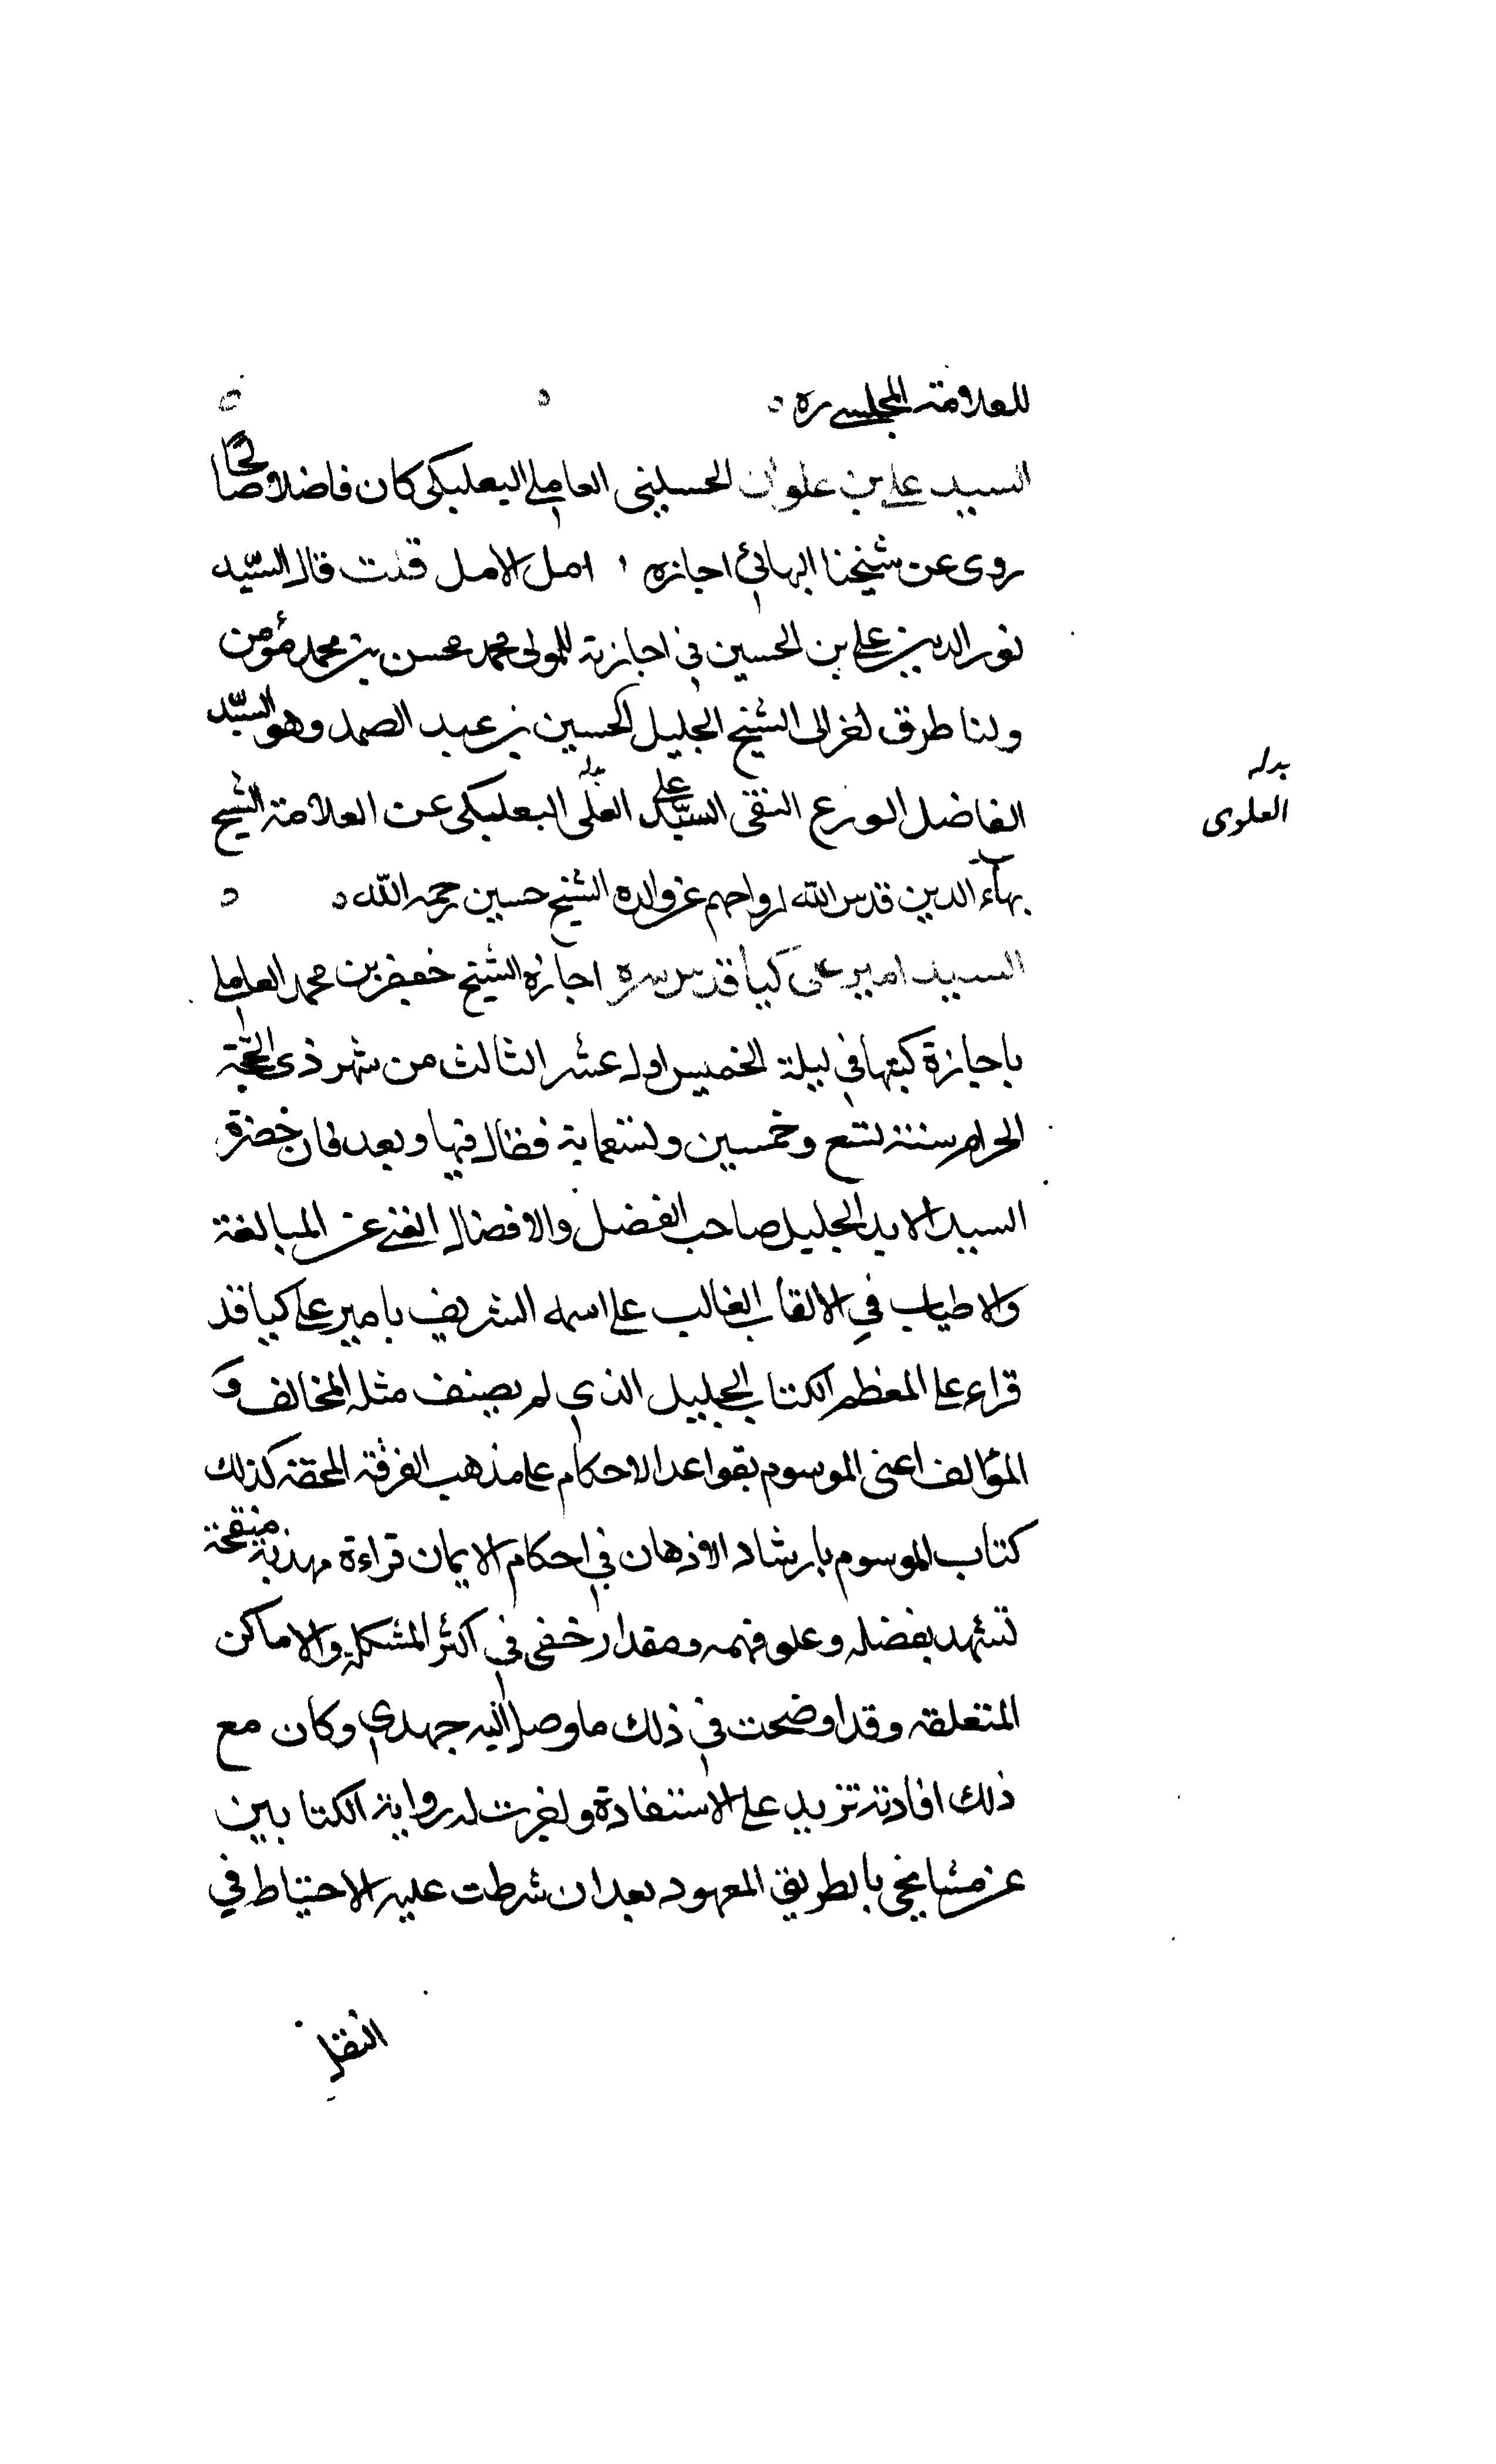 للعلامة المجلسي ره
السيد علي بن علوان الحسيني العاملي البعلبكي كان فاضلا صالحا
روى عن شيخنا البهائي اجازه امل الامل قلت قال السيّد
نور الدين علي بن الحسين في اجازته للمولى محمد محسن بن محمد مؤمن
ولنا طرق اخر الى الشيخ الجليل الحسين بن عبد الصمد وهو السيّد
الفاضل الورع التقى السيّد علي العلى البعلبكي عن العلامة الشيخ
بدله
العلوى
بهاء الدين قدس الله ارواحهم عن والده الشيخ حسين رحمه الله
السيد امير على كيا قدس سره اجازه الشيخ جعفر بن محمد العاملي
باجازة كتبها في ليلة الخميس اول عشر الثالث من شهر ذى الحجّة
الحرام سنة تسع وخمسين وتسعماية فقال فيها وبعد فان حضرة
السيد الايد الجليل صاحب الفضل والافضال الغني عن المبالغة
والاطناب في الالقاب الغالب على اسمه الشريف بامير علي كيا قد
قراء على المعظم الكتاب الجليل الذي لم يصنف مثله المخالف و
المؤالف اعنى الموسوم بقواعد الاحكام على مذهب الفرقة المحقة كذلك
كتاب الموسوم بارشاد الاذهان في احكام الايمان قراءة مهذبة منقحة
تشهد بفضله وعلو فهمه ومقدار خفى في اكثر المشكلة والاماكن
المتعلقه وقد اوضحت في ذلك ما وصل اليه جهدي وكان مع
ذلك افادته تزيد على الاستفادة ولغرت له رواية الكتابين
عن مشايخي بالطريق المعهود بعد ان شرطت عليه الاحتياط في
النقل